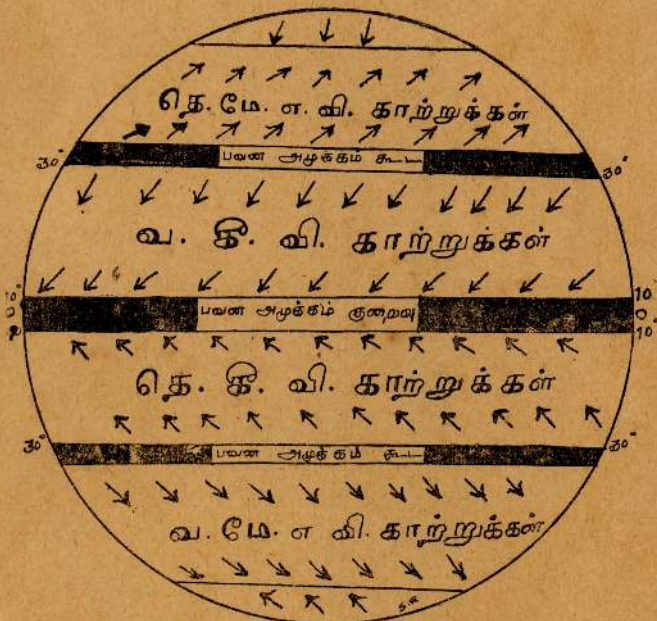 தெ. மே. எ. வி. காற்றுக்கள்
30° பவன அமுக்கம் கூட 30°
வ. கீ. வி. காற்றுக்கள்
10°
பவன அமுக்கம் குறைவு 0°
10°
தெ. கீ. வி. காற்றுக்கள்
30° பவன அமுக்கம் கூட 30°
வ. மே. எ வி. காற்றுக்கள்